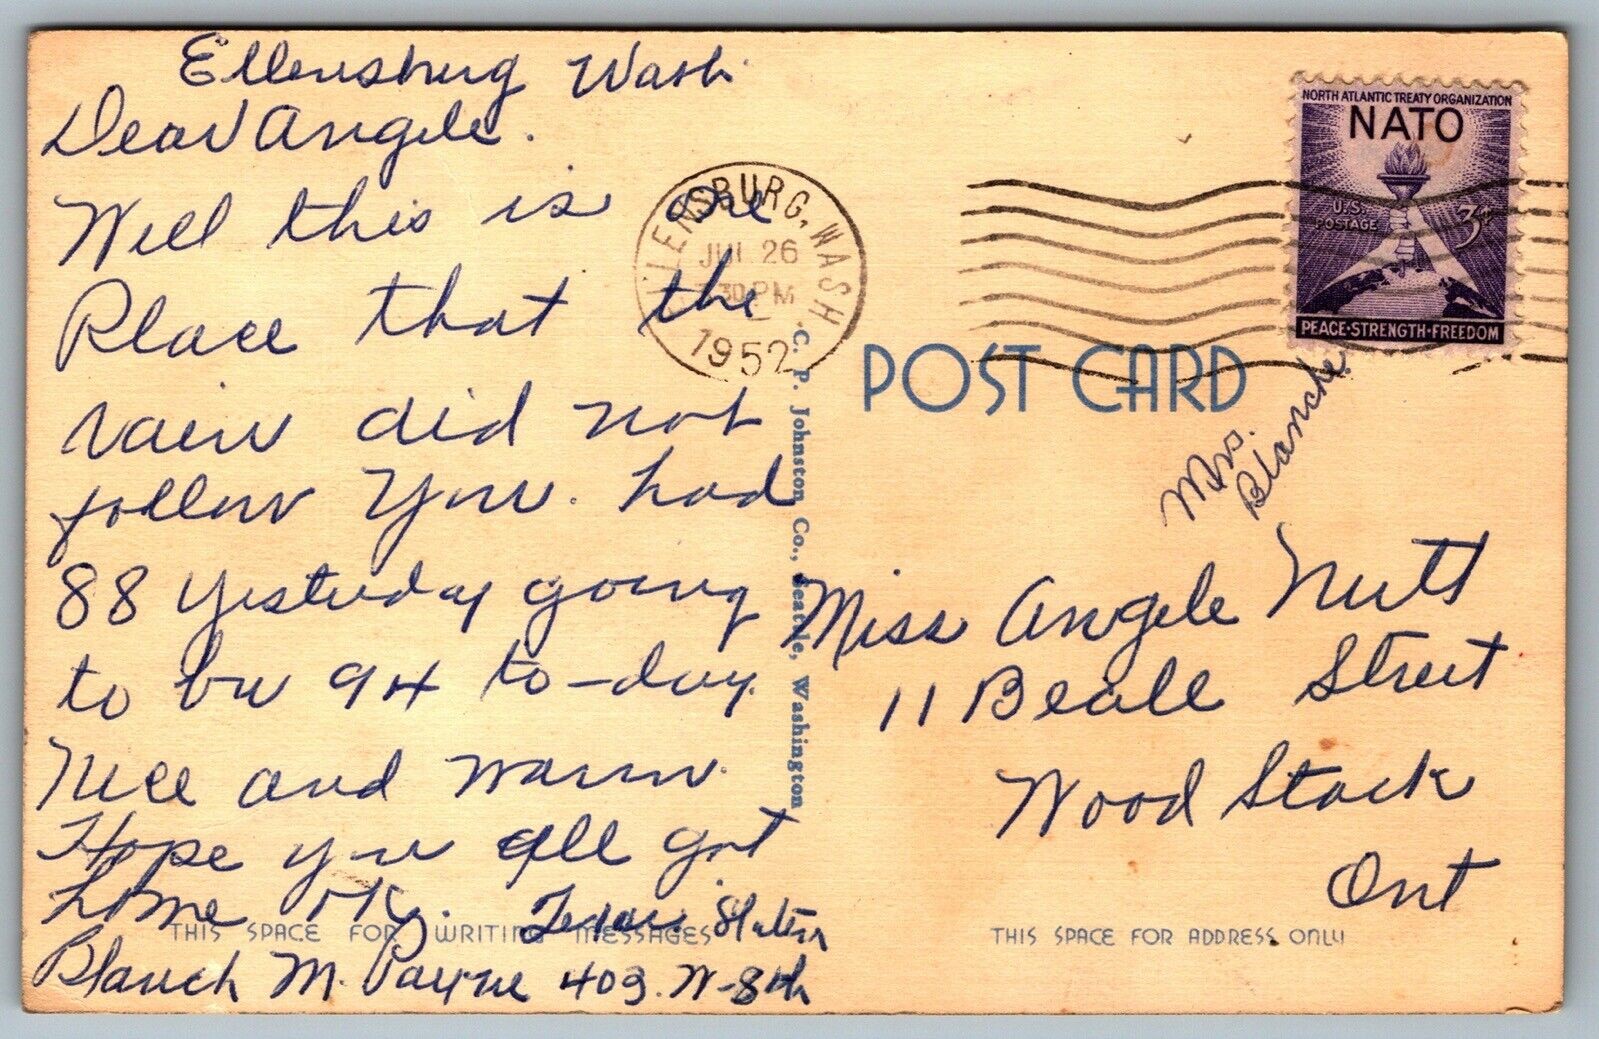 Ellensburg Wash.
Dear Angele.
Well this is one
Place that the
rain did not
follow You. had
88 Yesterday going
to be 94 to-day.
Nice and warm.
Hope you all got
home OK.
Blanch M. Payne 403. W-8th
THIS SPACE FOR WRITING MESSAGES
C. P. Johnston Co., Seattle, Washington
ELLENSBURG, WASH
JUL 26
30 PM
1952
NORTH ATLANTIC TREATY ORGANIZATION
NATO
U.S. POSTAGE
3¢
PEACE·STRENGTH·FREEDOM
POST CARD
Mrs.
Blanche
Miss Angele Nutt
11 Beale Street
Wood Stock
Ont
THIS SPACE FOR ADDRESS ONLY